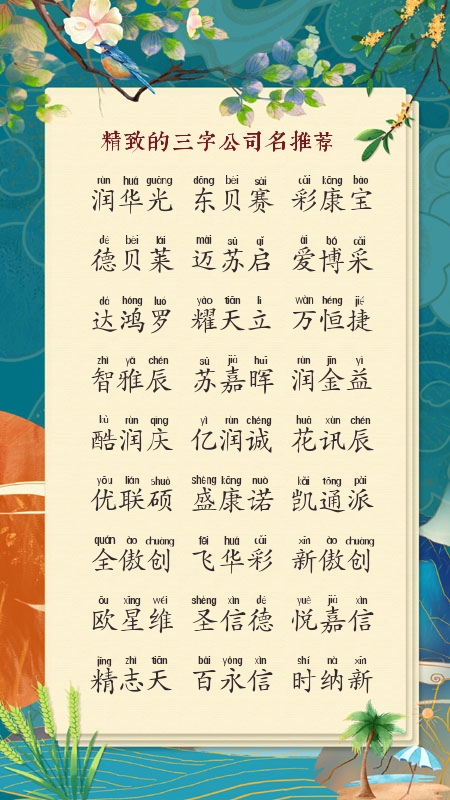 精致的三字公司名推荐
rùn huá guāng dōng bèi sài cǎi kāng bǎo
润华光 东贝赛 彩康宝
dé bèi lái mài sū qǐ ài bó cǎi
德贝莱 迈苏启 爱博采
dá hóng luó yào tiān lì wàn héng jié
达鸿罗 耀天立 万恒捷
zhì yǎ chén sū jiā huī rùn jīn yì
智雅辰 苏嘉晖 润金益
kù rùn qìng yì rùn chéng huā xùn chén
酷润庆 亿润诚 花讯辰
yōu lián shuò shèng kāng nuò kǎi tōng pài
优联硕 盛康诺 凯通派
quán ào chuàng fēi huá cǎi xīn ào chuàng
全傲创 飞华彩 新傲创
ōu xīng wéi shèng xìn dé yuè jiā xìn
欧星维 圣信德 悦嘉信
jīng zhì tiān bǎi yǒng xìn shí nà xīn
精志天 百永信 时纳新